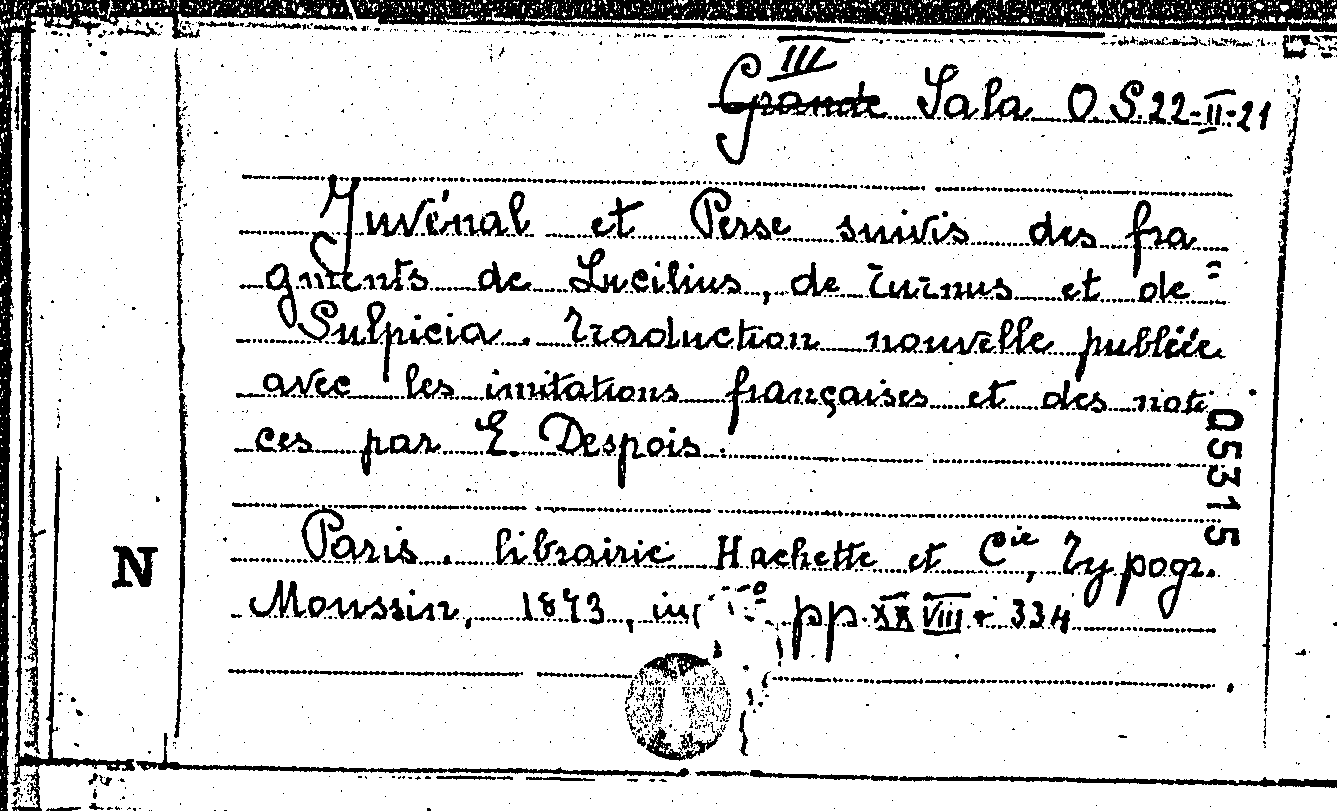 III
Grande Sala O.S.22-II-21
Juvénal et Perse suivis des fra
gments de Lucilius, de Turnus et de =
Sulpicia. Traduction nouvelle publiée
avec les imitations françaises et des noti
ces par E. Despois.
05315
Paris. librairie Hachette et Cie, Typogr.
N
Moussin, 1873, in pp. XXVIII + 334